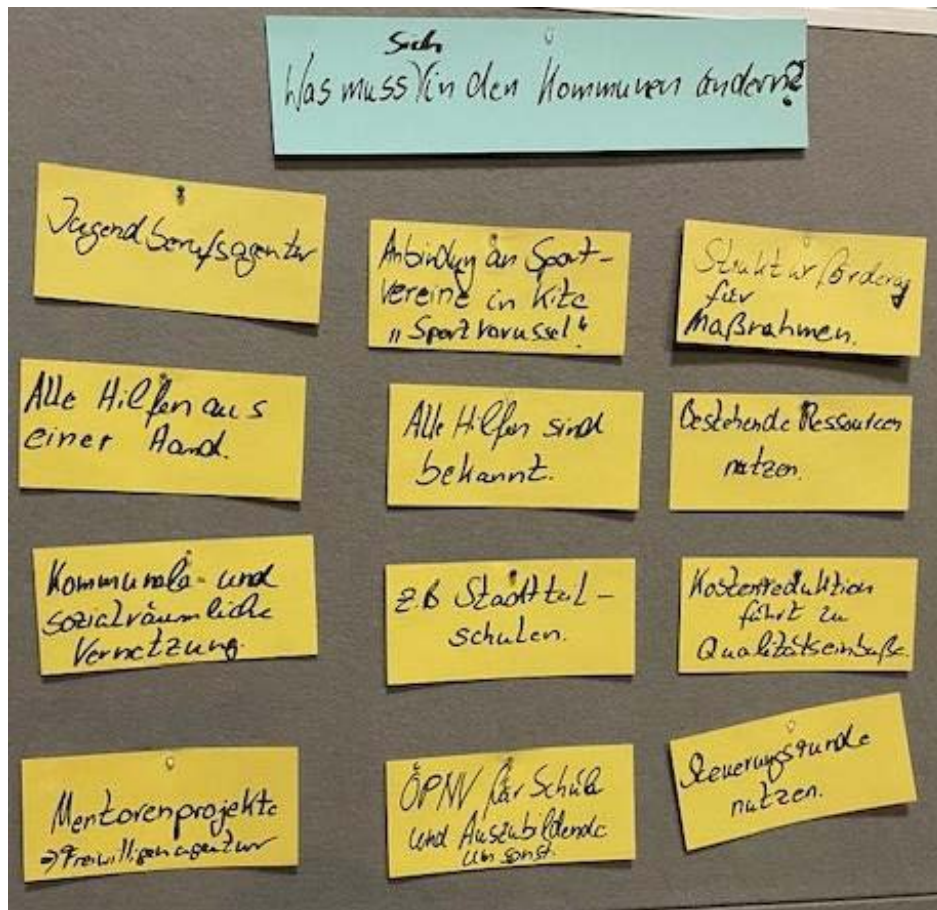 Was muss sich in den Kommunen ändern?
Jugendberufsagentur
Alle Hilfen aus
einer Hand.
Kommunale- und
sozialräumliche
Vernetzung.
Mentorenprojekte
⇒ Freiwilligenagentur
Anbindung an Sport-
vereine in Kita
„Sportkarussel“
Alle Hilfen sind
bekannt.
z.B Stadtteil-
schulen.
ÖPNV für Schüler
und Auszubildende
umsonst.
Strukturförderung
für
Maßnahmen.
Bestehende Ressourcen
nutzen.
Kostenreduktion
führt zu
Qualitätseinbuße.
Steuerungsrunde
nutzen.